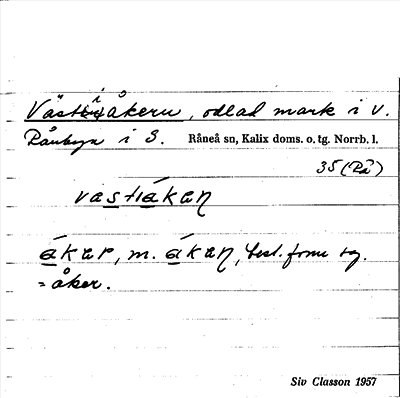 Västiåkern, odlad mark i V.
Rånbyn i S. Råneå sn, Kalix doms. o. tg. Norrb. l.
35 (Rå)
vastiákaɳ
ákar, m. ákaɳ, best. form sg.
= åker.
Siv Classon 1957